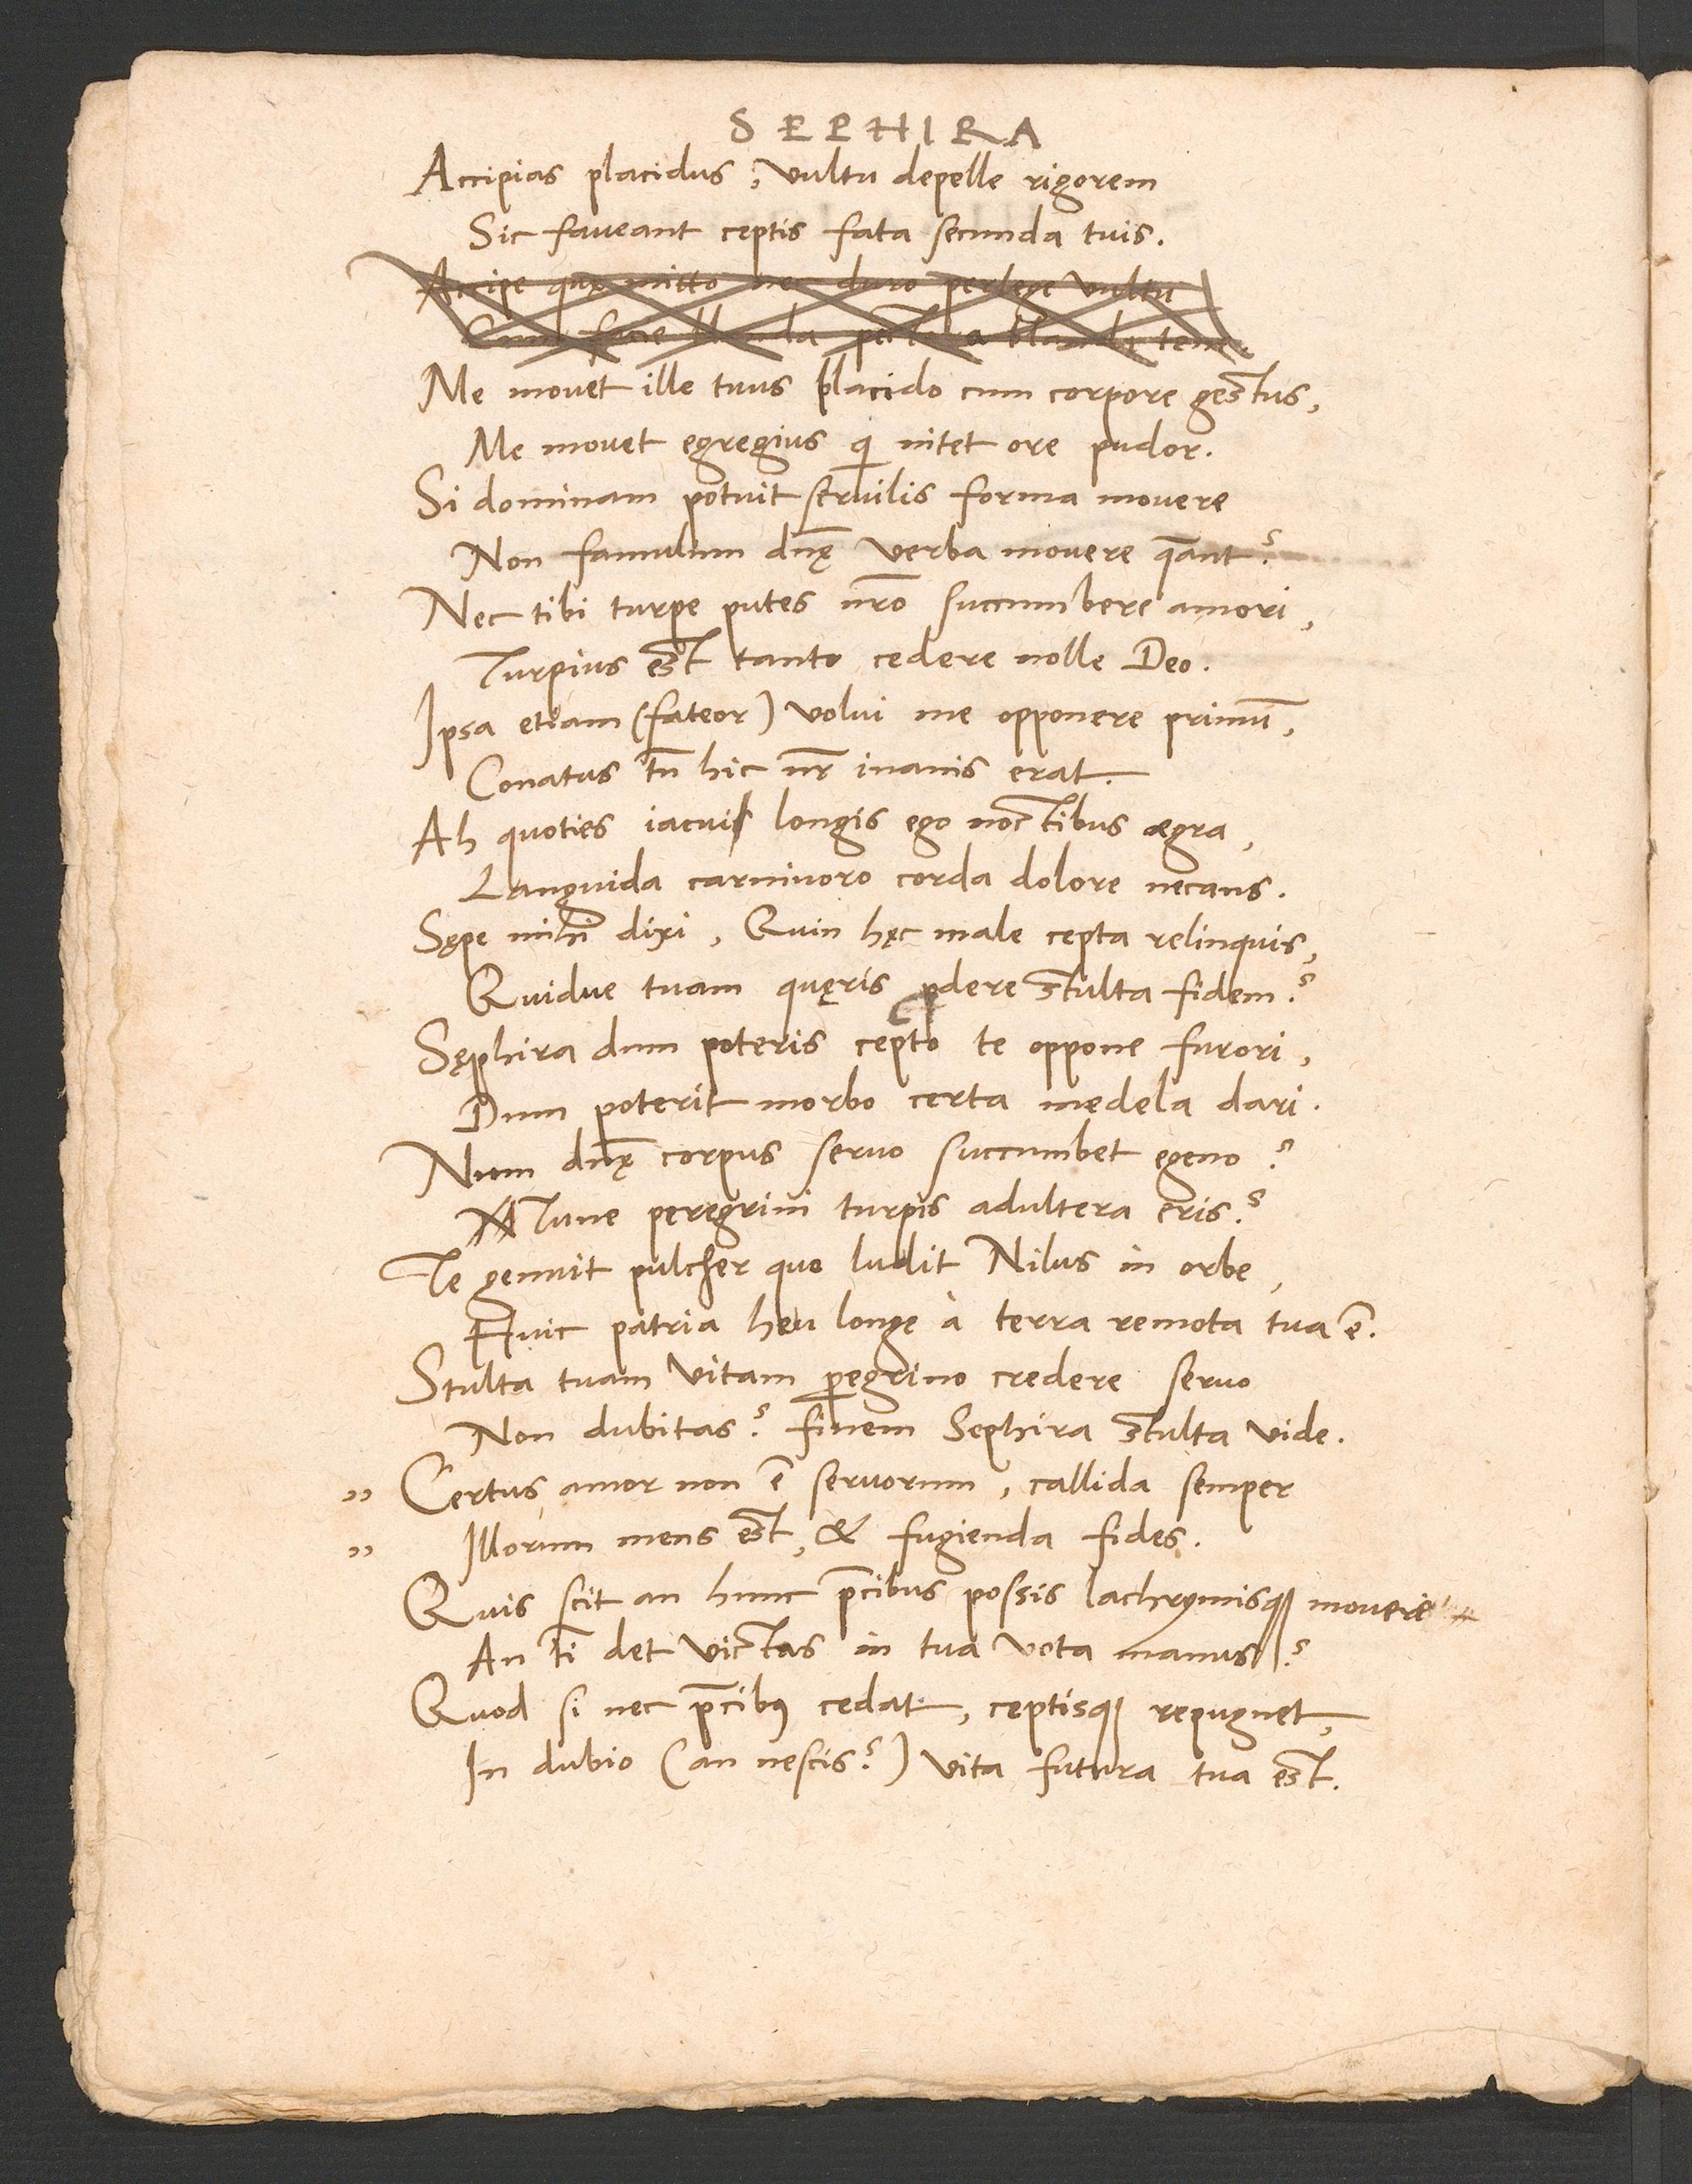 SEPHIRA
Accipias placidus, vultu depelle rigorem
Sic faveant ceptis fata secunda tuis.
Accipe quę mitto nec duro perlege vultu
Cum blanda tene.
Me movet ille tuus placido cum corpore gestus,
Me movet egregius q̄ nitet ore pudor.
Si dominam potuit servilis forma movere
Non famulum dn̄ę verba movere q̄ant?
Nec tibi turpe putes nr̄o succumbere amori,
Turpius est tanto cedere nolle Deo.
Ipsa etiam (fateor) volui me opponere primū,
Conatus tn̄ hic nr̄ inanis erat.
Ah quoties iacui longis ego noctibus ægra,
Languida carnivoro corda dolore necans.
Sępe mihi dixi, Quin hęc male cepta relinquis,
Quidve tuam quęris ꝑdere stulta fidem?
Sęphira dum poteris cepto te oppone furori,
Dum poterit morbo certa medela dari.
Num dn̄ę corpus servo succumbet egeno?
Tune peregrini turpis adultera eris?
Te genuit pulcher quo ludit Nilus in orbe,
Huic patria heu longe à terra remota tua ē.
Stulta tuam vitam ꝑegrino credere servo
Non dubitas? finem Sephira stulta vide.
" Certus amor non ē servorum, callida semper
" Illorum mens est, & fugienda fides.
Quis scit an hunc p̄cibus possis lachrymisqꝫ movere
An tī det victas in tua vota manus?
Quod si nec p̄cibꝰ cedat, ceptisqꝫ repugnet,
In dubio (an nescis?) vita futura tua est.